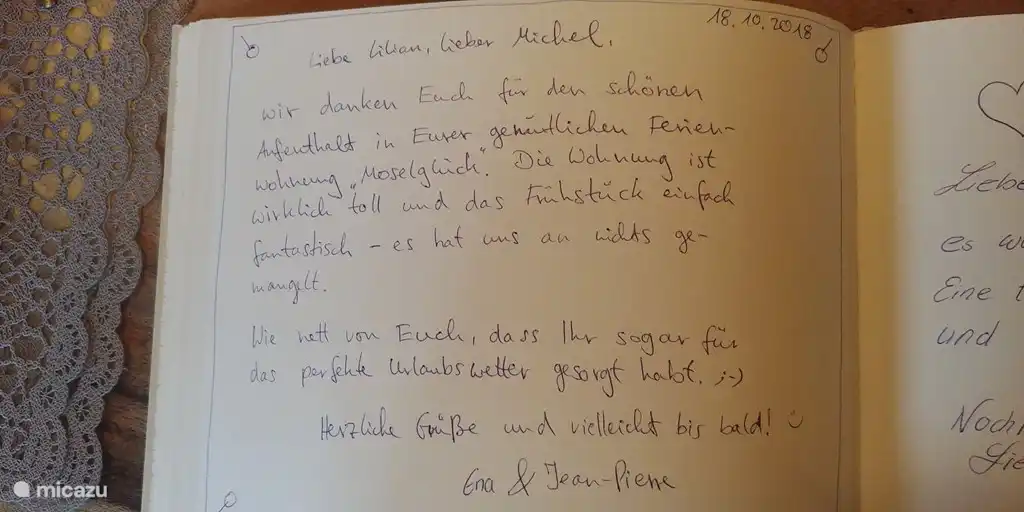 18.10.2018
Liebe Lilian, lieber Michel,
wir danken Euch für den schönen
Aufenthalt in Eurer gemütlichen Ferien-
wohnung „Moselglück“. Die Wohnung ist
wirklich toll und das Frühstück einfach
fantastisch – es hat uns an nichts ge-
mangelt.
Wie nett von Euch, dass Ihr sogar für
das perfekte Urlaubswetter gesorgt habt. ;-)
Herzliche Grüße und vielleicht bis bald!
Ena & Jean-Pierre
Liebe
es
Eine
und
Noch
micazu